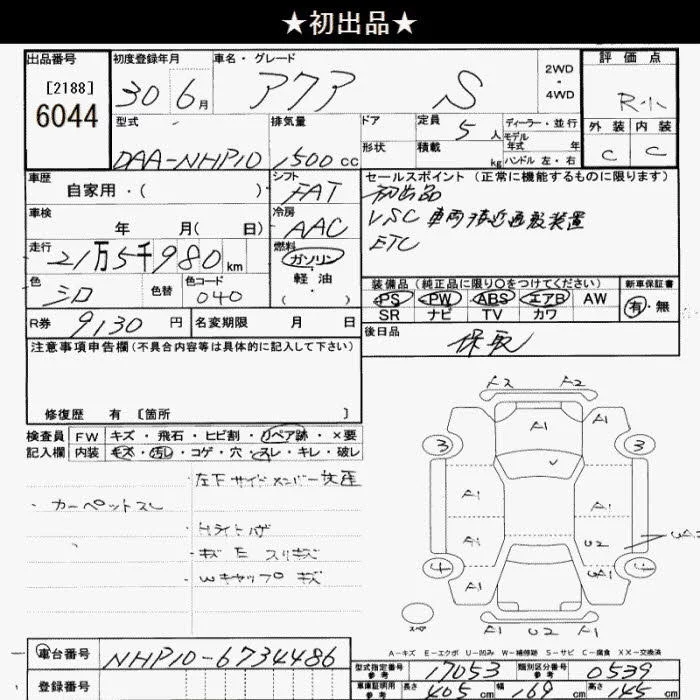 ★初出品★
出品番号 初度登録年月 車名・グレード 2WD・4WD 評価点
[2188]
6044
30 6月 アクア S R小
型式 排気量 ドア 定員 5人 ディーラー・並行 外装 内装
モデル年式 年式
DAA-NHP10 1500cc 形状 積載 kg ハンドル 左・右 C C
車歴 シフト セールスポイント (正常に機能するものに限ります)
自家用・( ) FAT 初出品
車検 冷房 VSC 車両接近通報装置
年 月( 日) AAC ETC
走行 燃料
21万5千980km ガソリン・
軽油
・( )
色 色替 色コード
シロ 040
装備品 (純正品に限り○をつけてください) 新車保証書
PS PW ABS エアB AW 有・無
SR ナビ TV カワ
R券 9130円 名変期限 月 日
後日品 保取
注意事項申告欄(不具合内容等は具体的に記入して下さい)
修復歴 有 [箇所 ]
検査員 FW キズ・飛石・ヒビ割・リペア跡・×要
記入欄 内装 キズ・汚レ・コゲ・穴・スレ・キレ・破レ
・左下サイドメンバー
・カーペットスレ
・Hライトハゲ
・キズ E スリキズ
・Wキャップ キズ
A2 A2
A1 A1
3 3
A1 A1
A1 U2
4 4
A1
A1 U2 A1
スペア
A-キズ E-エクボ U-凹み W-補修跡 S-サビ C-腐食 XX-交換済
車台番号 NHP10-6734486
型式指定番号 参考 17053 類別区分番号 参考 0539
登録番号
車庫証明用 参考 長さ 405cm 幅 169cm 高さ 145cm